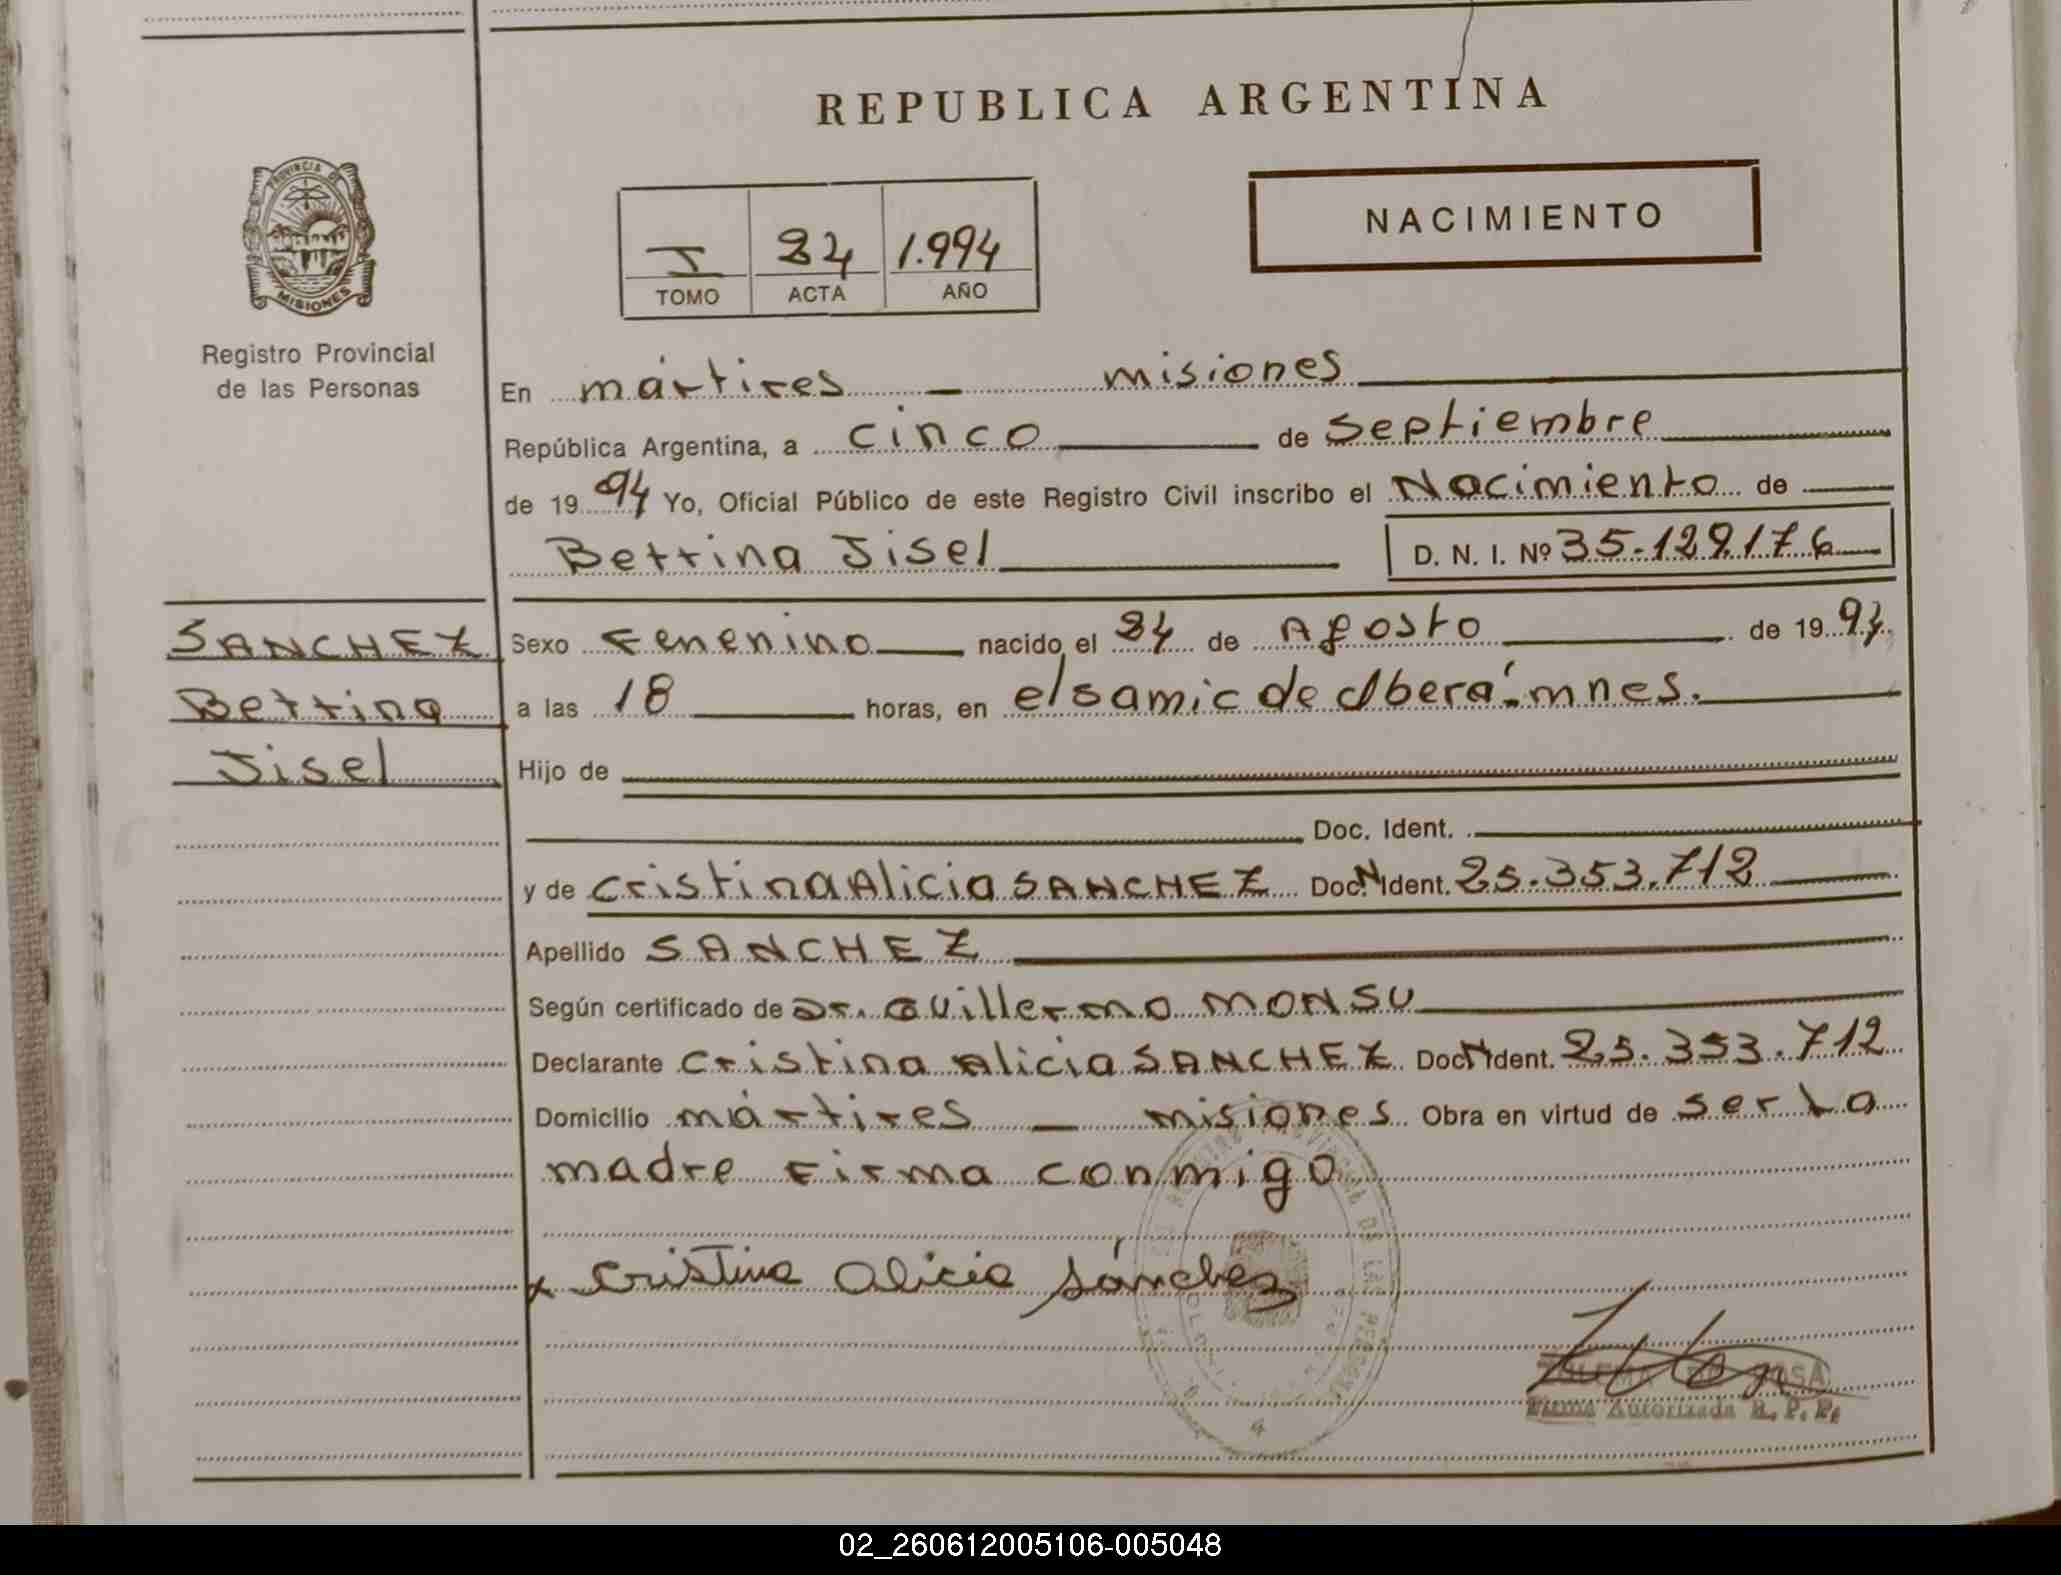 REPUBLICA ARGENTINA
PROVINCIA DE
MISIONES
Registro Provincial
de las Personas
I 24 1.994
TOMO ACTA AÑO
NACIMIENTO
En mártires — misiones
República Argentina, a cinco de septiembre
de 1994 Yo, Oficial Público de este Registro Civil inscribo el Nacimiento de
Bettina Jisel D. N. I. Nº 35.129.176
SANCHEZ
Bettina
Jisel
Sexo Femenino nacido el 24 de Agosto de 1994
a las 18 horas, en el samic de Oberá - mnes.
Hijo de
Doc. Ident.
y de Cristina Alicia SANCHEZ Doc. N Ident. 25.353.712
Apellido SANCHEZ
Según certificado de Dr. Guillermo MONSU
Declarante Cristina Alicia SANCHEZ Doc. N Ident. 25.353.712
Domicilio mártires — misiones Obra en virtud de ser la
madre Firma conmigo
x Cristina Alicia Sánchez
Firma Autorizada R. P. P.
02_260612005106-005048